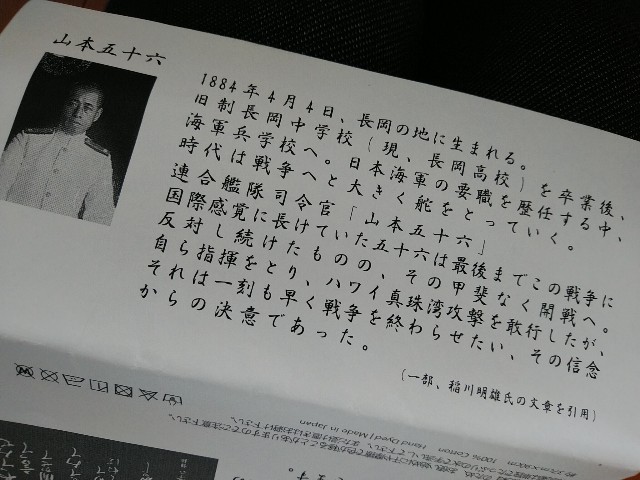 山本五十六
1884年4月4日、長岡の地に生まれる。
旧制長岡中学校(現、長岡高校)を卒業後、
海軍兵学校へ。日本海軍の要職を歴任する中、
時代は戦争へと大きく舵をとっていく。
連合艦隊司令官「山本五十六」
国際感覚に長けていた五十六は最後までこの戦争に
反対し続けたものの、その甲斐なく開戦へ。
自ら指揮をとり、ハワイ真珠湾攻撃を敢行したが、
それは一刻も早く戦争を終わらせたい、その信念
からの決意であった。
(一部、稲川明雄氏の文章を引用)
100% Cotton Hand Dyed | Made in Japan